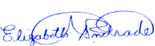 Elizabeth Andrade